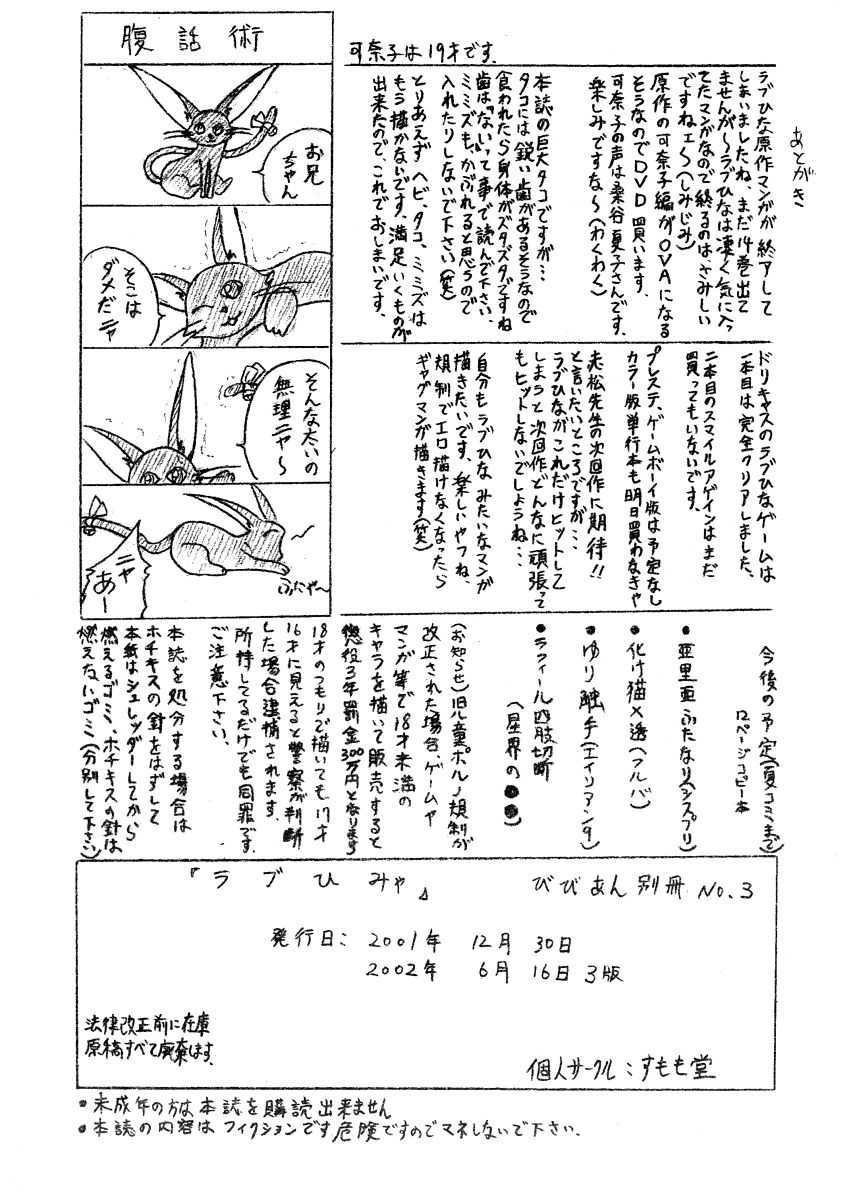 あとがき
腹話術
お兄
ちゃん
そこは
ダメだニャ
そんな太いの
無理ニャ〜
ふにゃ〜
ニャ
あー
可奈子は19才です。
ラブひな原作マンガが終アして
しまいましたね、まだ14巻出て
ませんが〜ラブひなは凄く気に入っ
てたマンガなので終るのは、さみしい
ですねェ〜(しみじみ)
原作の可奈子編がOVAになる
そうなのでDVD買います、
可奈子の声は桑谷夏子さんです、
楽しみですな〜(わくわく)
本誌の巨大タコですが…
タコには鋭い歯があるそうなので
食われたら身体がズタズタですね
歯は「ない」って事で読んで下さい、
ミミズも、かぶれると思うので
入れたりしないで下さい(笑)
とりあえずヘビ、タコ、ミミズは
もう描かないです、満足いくものが
出来たので、これでおしまいです、
ドリキャスのラブひなゲームは
一本目は完全クリアしました、
二本目のスマイルアゲインはまだ
買ってもいないです、
プレステ、ゲームボーイ版は予定なし
カラー版単行本も明日買わなきゃ
赤松先生の次回作に期待!!
と言いたいところですが…
ラブひながこれだけヒットして
しまうと次回作どんなに頑張って
もヒットしないでしょうね…
自分もラブひなみたいなマンガ
描きたいです、楽しいやつね、
規制でエロ描けなくなったら
ギャグマンガ描きます(笑)
今後の予定(夏コミまで)
12ページコピー本
●亜里亜ふたなり(シスプリ)
●化け猫×透(フルバ)
●ゆり触手(エイリアン9)
●ラフィール四肢切断
(星界の●●)
(お知らせ)旧児童ポルノ規制が
改正された場合、ゲームや
マンガ等で18才未満の
キャラを描いて販売すると
懲役3年罰金300万円となります
18才のつもりで描いても17才
16才に見えると警察が判断
した場合逮捕されます、
所持してるだけでも同罪です、
ご注意下さい、
本誌を処分する場合は
ホチキスの針をはずして
本紙はシュレッダーしてから
燃えるゴミ、ホチキスの針は
燃えないゴミ(分別して下さい)
『ラブひみゃ』 びびあん別冊 No.3
発行日: 2001年 12月 30日
2002年 6月 16日 3版
法律改正前に在庫
原稿すべて廃棄します、
個人サークル:すもも堂
●未成年の方は本誌を購読出来ません
●本誌の内容はフィクションです危険ですのでマネしないで下さい、